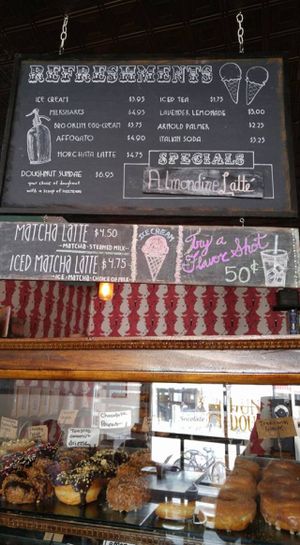 REFRESHMENTS
ICE CREAM $3.95
MILKSHAKES $4.95
BROOKLYN EGG-CREAM $3.75
AFFOGATO $4.90
HORCHATA LATTE $4.75
DOUGHNUT SUNDAE $6.95
your choice of doughnut
with a scoop of
ICED TEA $1.75
LAVENDER LEMONADE $3.00
ARNOLD PALMER $2.25
ITALIAN SODA $3.25
SPECIALS
Almondine Latte
MATCHA LATTE $4.50
-MATCHA-STEAMED MILK-
ICED MATCHA LATTE $4.75
-ICE-MATCHA-CHOICE OF MILK-
ICE CREAM
Try a
Flavor Shot
50¢
Chocolate
Peanut
Toasted
Coconut
Traditional
Glazed